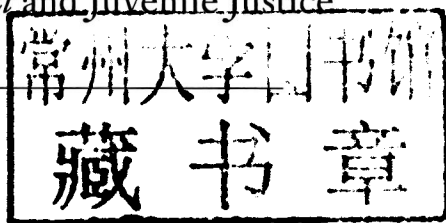 and Juvenile Justice
常州大学图书馆
藏书章